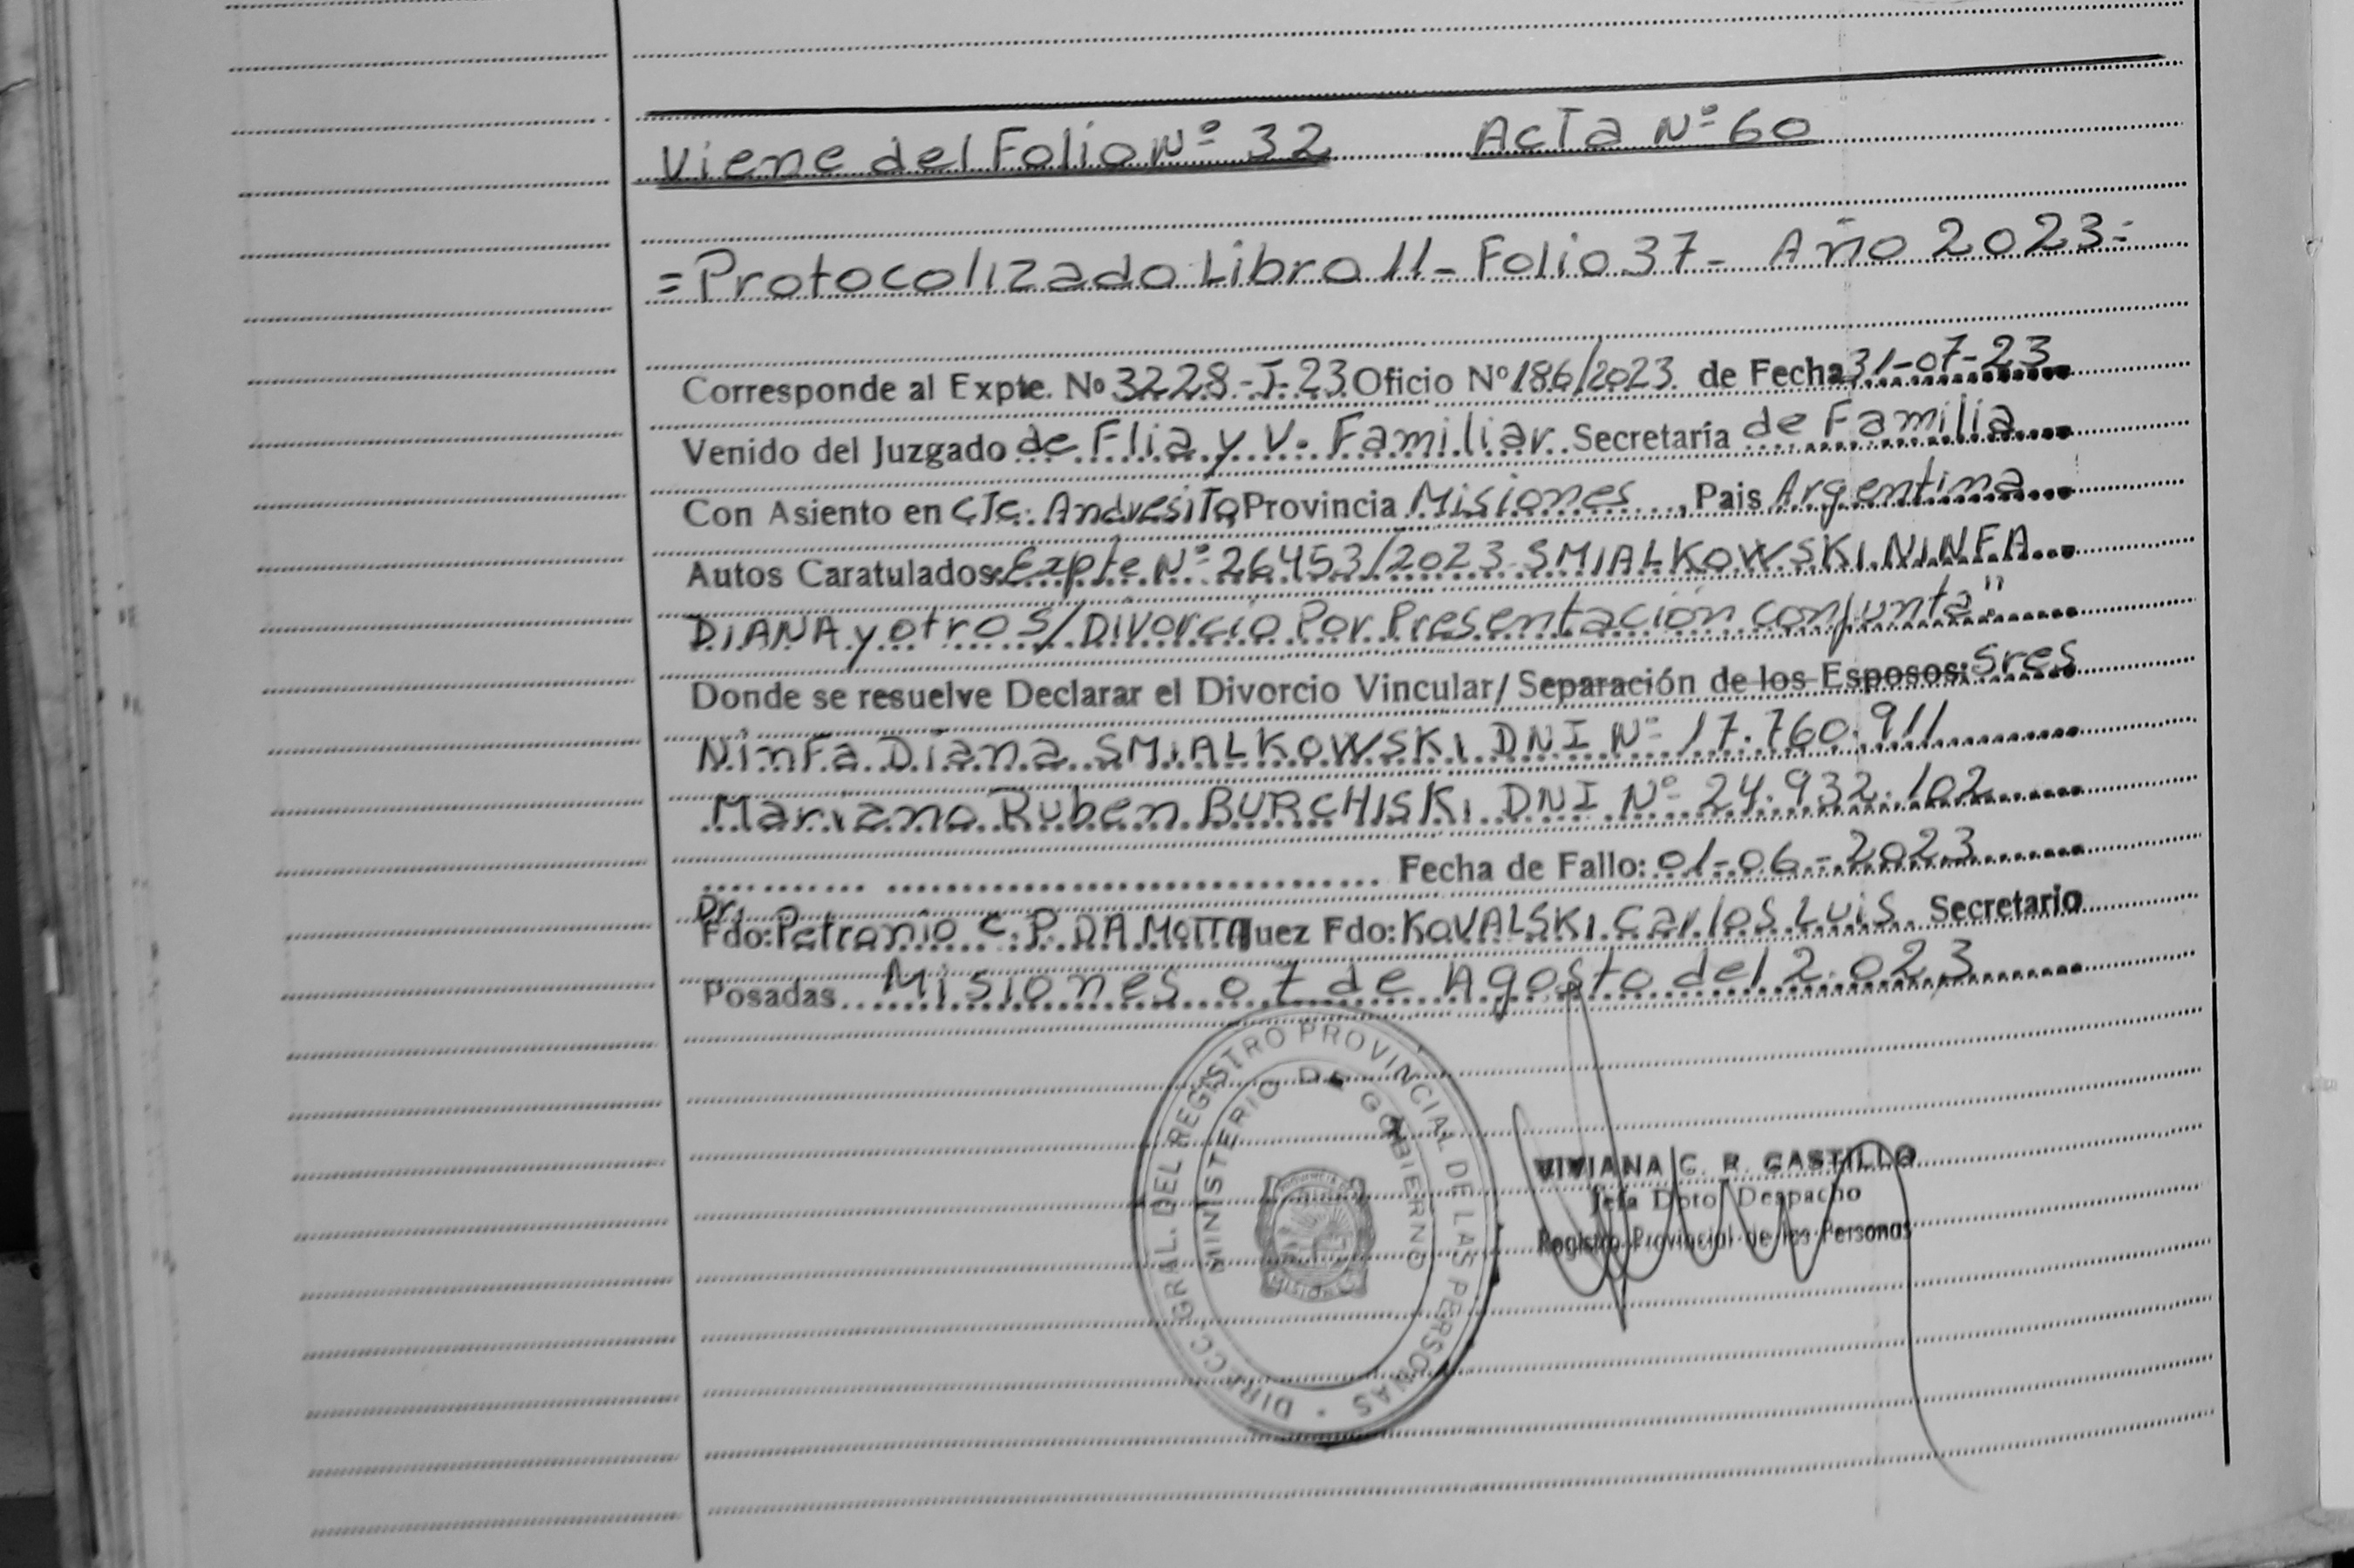 Viene del Folio Nº 32 Acta Nº 60
= Protocolizado Libro 11 - Folio 37 - Año 2023 =
Corresponde al Expte. Nº 3228-I-23 Oficio Nº 186/2023 de Fecha 31-07-23
Venido del Juzgado de Flia y V. Familiar Secretaría de Familia
Con Asiento en Cte. Andresito Provincia Misiones, Pais Argentina
Autos Caratulados: Expte Nº 26453/2023 SMIALKOWSKI NINFA
DIANA y otro S/ Divorcio Por Presentación conjunta"
Donde se resuelve Declarar el Divorcio Vincular/ Separación de los Esposos: Sres
Ninfa Diana SMIALKOWSKI DNI Nº 17.760.911
Mariano Ruben BURCHISKI DNI Nº 24.932.102
Fecha de Fallo: 01-06-2023
Dr.
Fdo: Petronio C. P. DA MOTTA Juez Fdo: KOVALSKI Carlos Luis Secretario
Posadas Misiones 07 de Agosto del 2.023
DIRECC. GRAL. DEL REGISTRO PROVINCIAL DE LAS PERSONAS
MINISTERIO DE GOBIERNO
PROVINCIA DE
MISIONES
VIVIANA C. R. CASTILLO
Jefa Dpto Despacho
Registro Provincial de las Personas